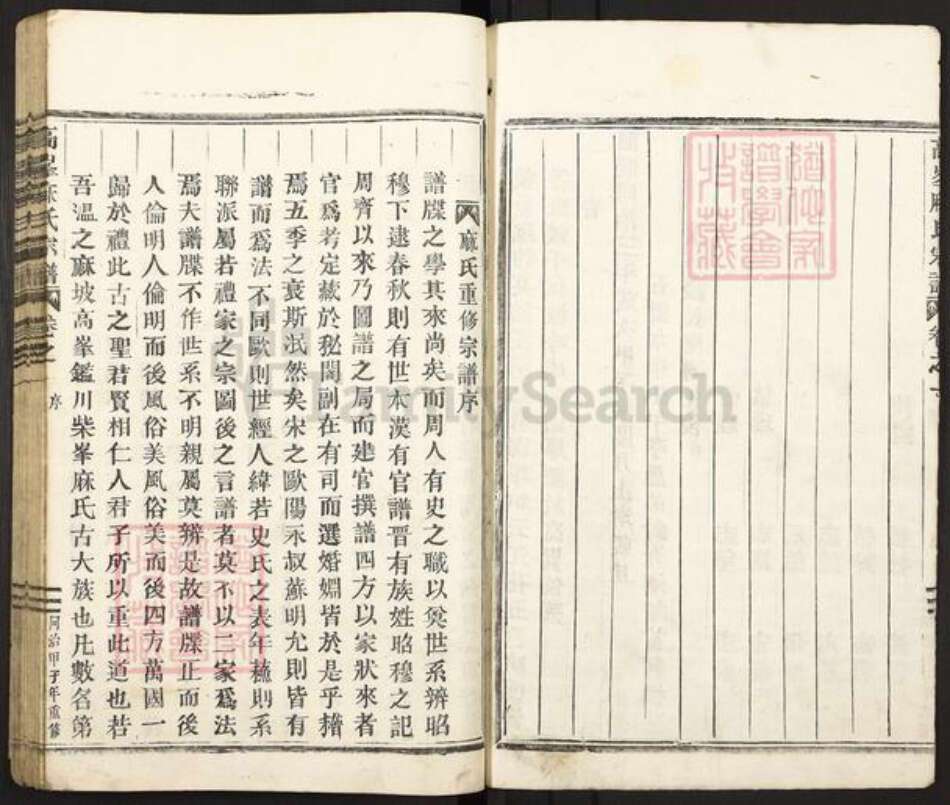 麻氏重修宗譜序
譜牒之學其來尚矣而周人有史之職以奠世系辨昭
穆下逮春秋則有世本漢有官譜晋有族姓昭穆之記
周齊以來乃圖譜之局而建官撰譜四方以家狀來者
官爲考定藏於秘閣副在有司而選婚姻皆於是乎稽
焉五季之衰斯泯然矣宋之歐陽永叔蘇明允則皆有
譜而爲法不同歐則世經人緯若史氏之表年蘓則系
聯派屬若禮家之宗圖後之言譜者莫不以二家爲法
焉夫譜牒不作世系不明親屬莫辨是故譜牒正而後
人倫明人倫明而後風俗美風俗美而後四方萬國一
歸於禮此古之聖君賢相仁人君子所以重此道也若
吾温之麻坡高峯鑑川柴峯麻氏古大族也凡數各第
麻氏宗譜 卷之 序
同治甲子年重修
麻氏宗譜 卷之
FamilySearch